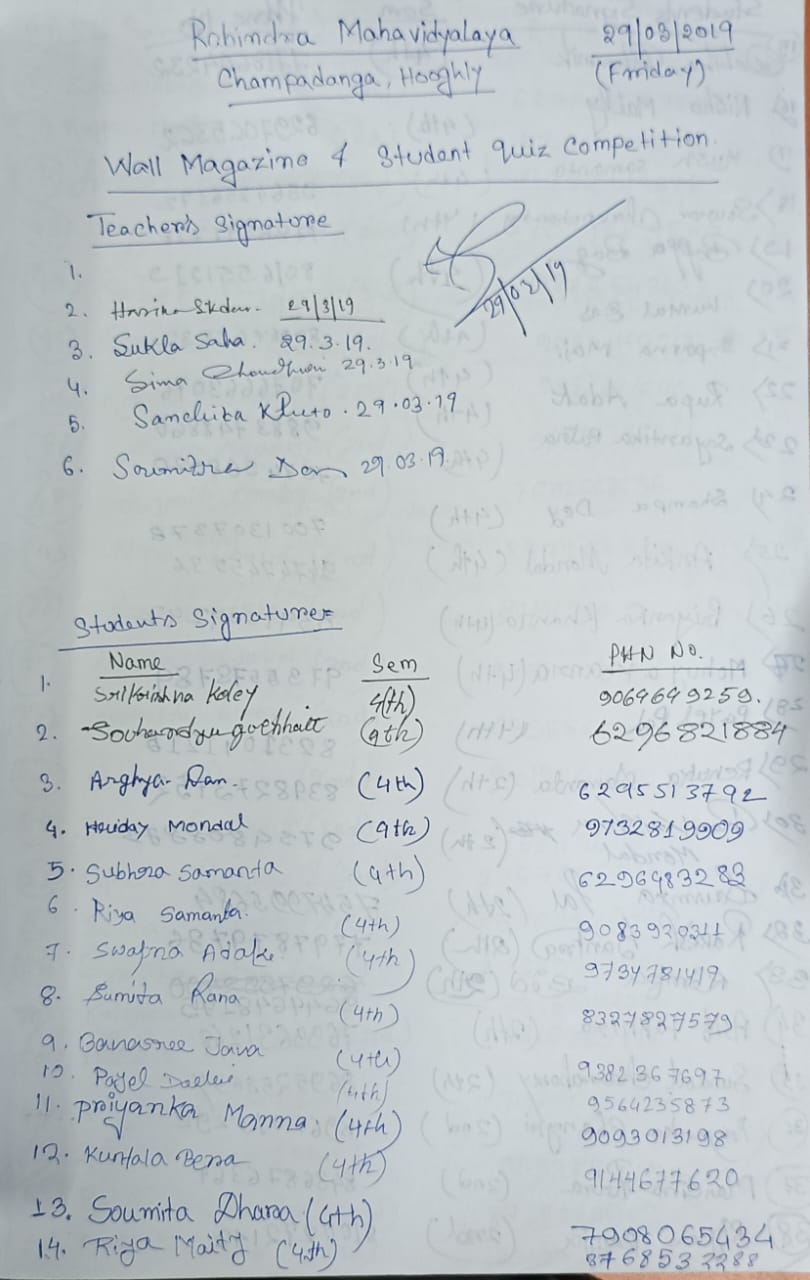 Rabindra Mahavidyalaya 29/03/2019
Champadanga, Hooghly (Friday)
Wall Magazine & Student quiz competition.
Teacher's Signature
29/03/19
1.
2. 29/3/19
3. Sukla Saha. 29.3.19.
4. Sima Choudhuri 29.3.19
5. Sanchita 29.03.19
6. Soumitra 29.03.19.
Students Signature
Name Sem PHN No.
1. Srikrishna Koley 4(th) 9064649259.
2. (4th) 6296821884
3. Arghya Dan. (4th) 6295513792
4. Mondal (4th) 9732819909
5. Subhra Samanta (4th) 6296483283
6. Riya Samanta. (4th)
7. Swapna Adak. (4th) 9734781419
8. Sumita Rana (4th) 8327827579
9. Banasree Jana (4th) 9382367697
10. Payel (4th) 9564235873
11. Priyanka Manna. (4th) 9093013198
12. Kuntala Bera (4th) 9144677620
13. Soumita Dhara (4th) 7908065434
14. Riya Maity (4th)